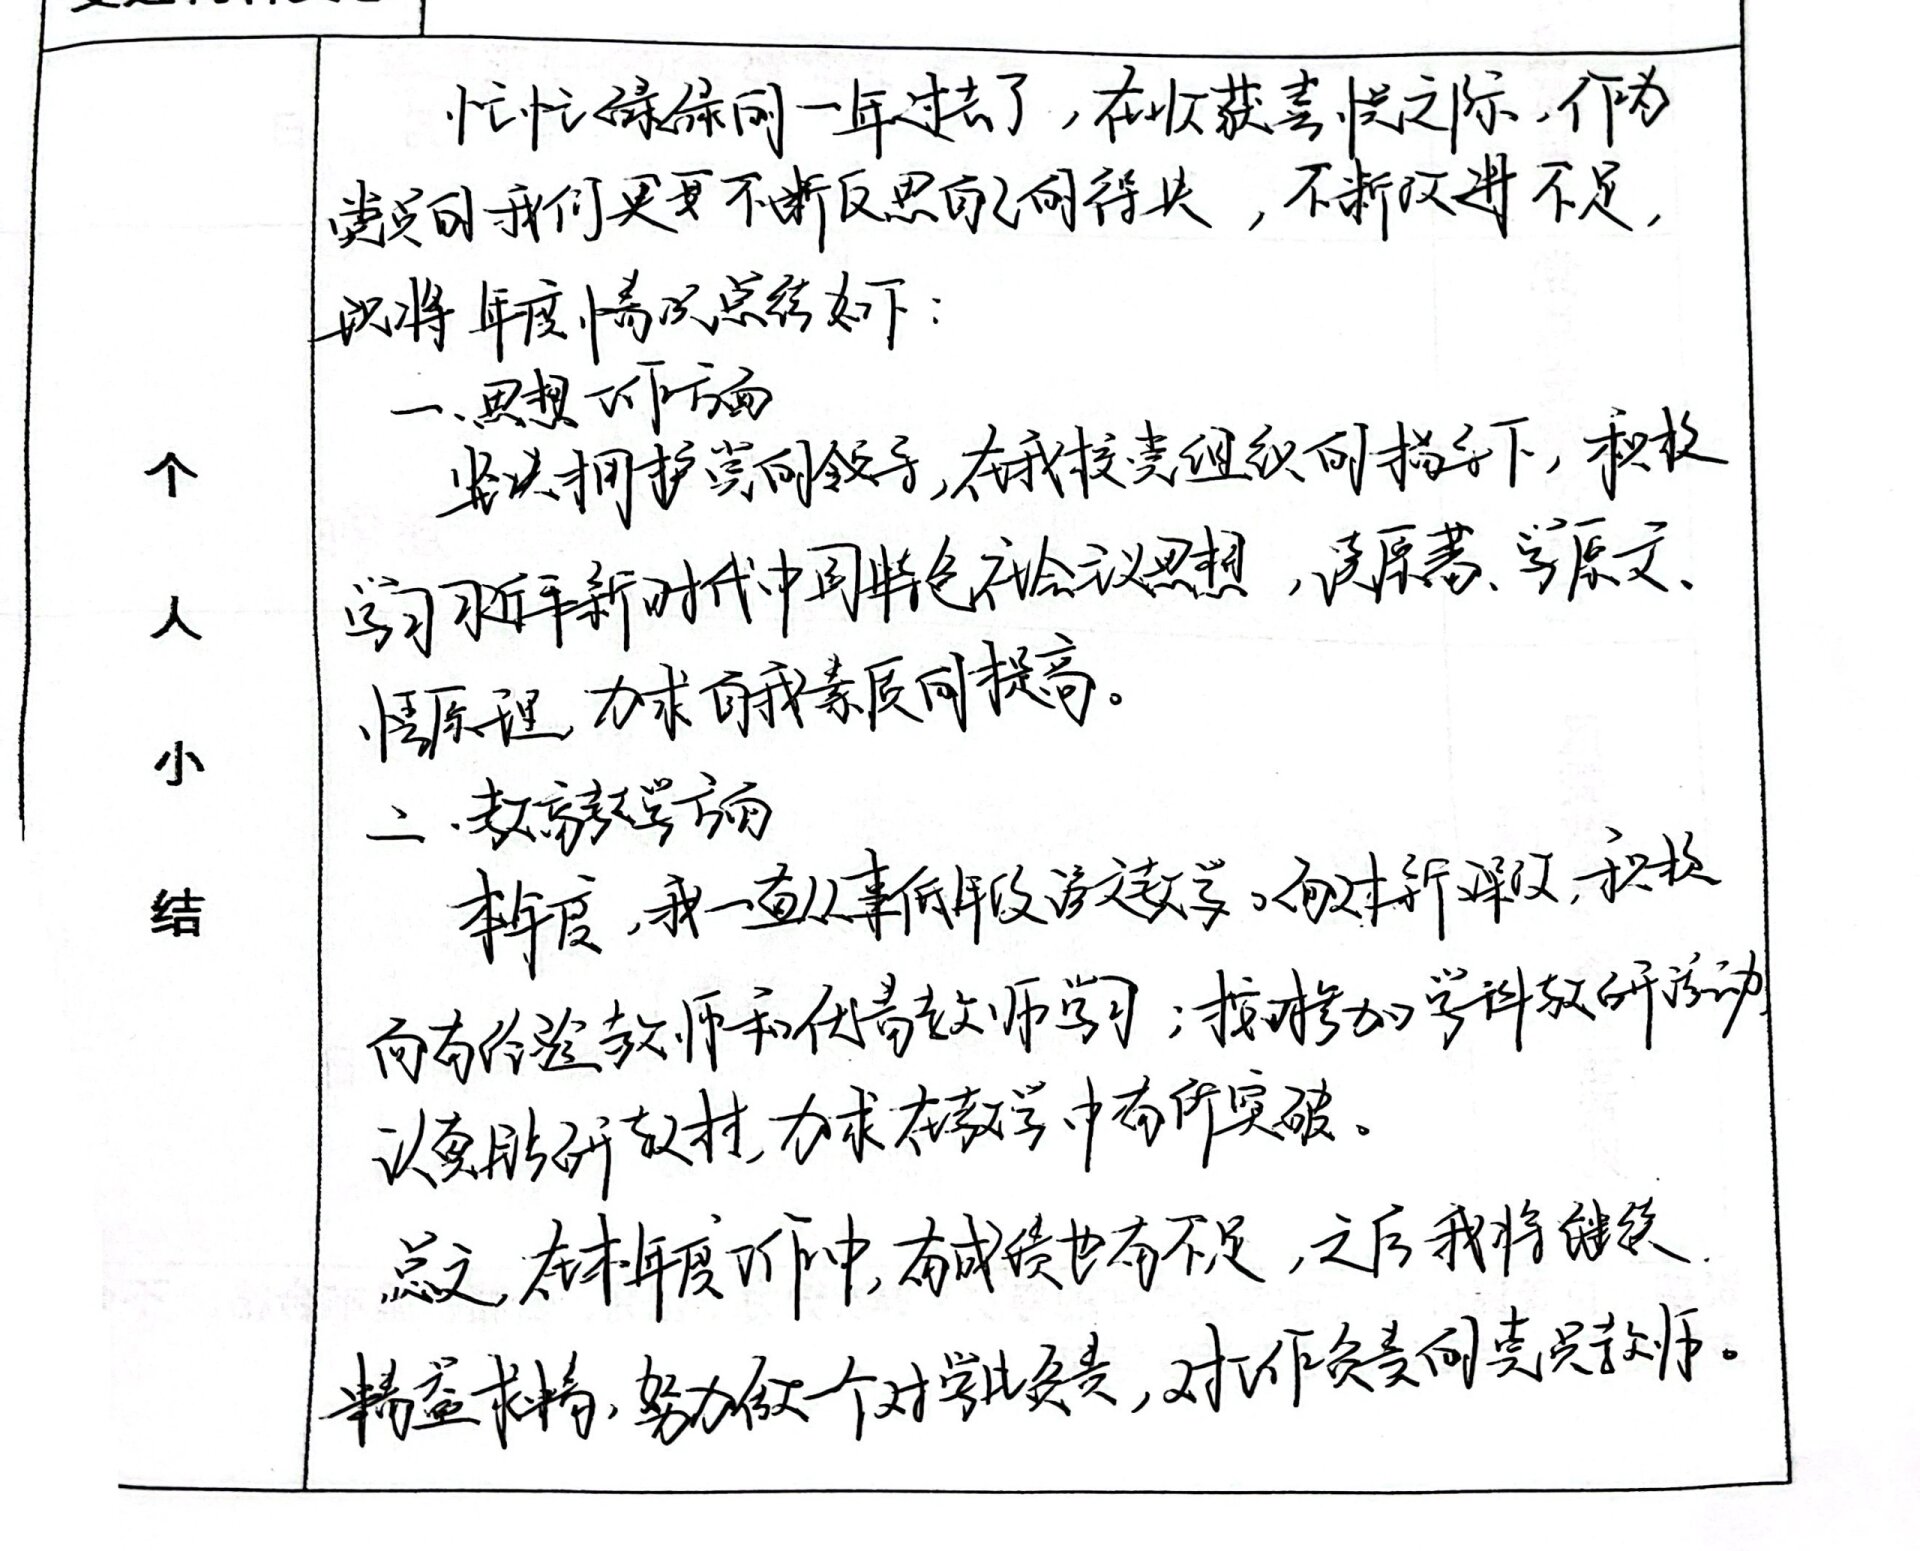 个人小结
忙忙碌碌的一年过去了，在收获喜悦之际，作为
党员的我们更要不断反思自己的得失，不断改进不足，
现将年度情况总结如下：
一、思想工作方面
坚决拥护党的领导，在我校党组织的指导下，积极
学习习近平新时代中国特色社会主义思想，读原著、学原文、
悟原理，力求自我素质的提高。
二、教育教学方面
本年度，我一直从事低年段语文教学。面对新课改，积极
向有经验教师和优秀教师学习；按时参加学科教研活动，
认真钻研教材，力求在教学中有所突破。
总之，在本年度工作中，有成绩也有不足，之后我将继续
精益求精，努力做一个对学生负责，对工作负责的党员教师。